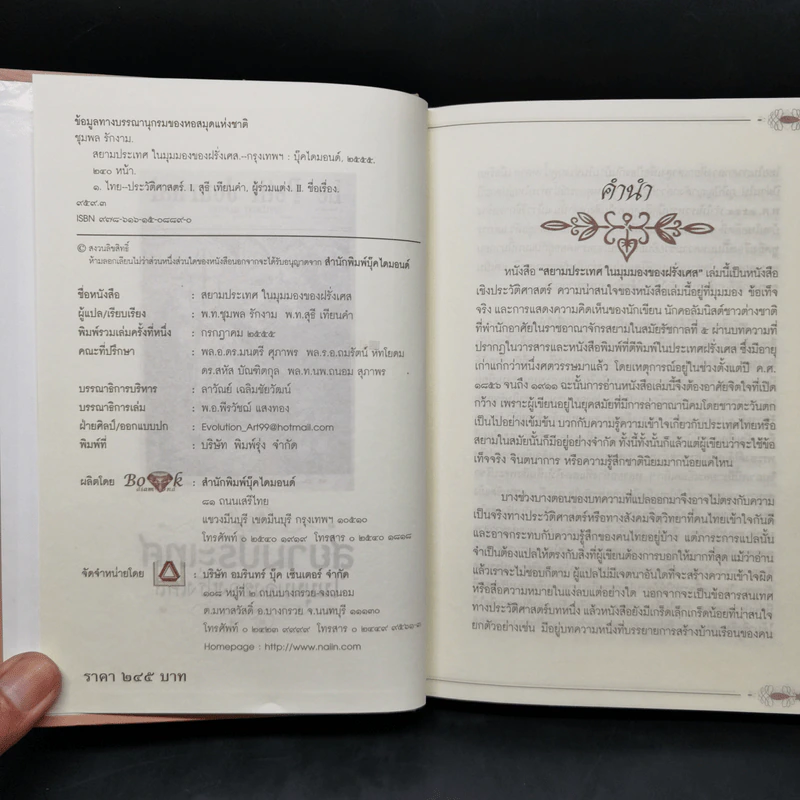 ข้อมูลทางบรรณานุกรมของหอสมุดแห่งชาติ
ชุมพล รักงาม.
สยามประเทศ ในมุมมองของฝรั่งเศส.--กรุงเทพฯ : บุ๊คไดมอนด์, ๒๕๕๕.
๒๔๐ หน้า.
๑. ไทย--ประวัติศาสตร์. I. สุธี เทียนคำ, ผู้ร่วมแต่ง. II. ชื่อเรื่อง.
๙๕๙.๓
ISBN ๙๗๘-๖๑๖-๑๕-๐๘๘๙-๐
© สงวนลิขสิทธิ์
ห้ามลอกเลียนไม่ว่าส่วนหนึ่งส่วนใดของหนังสือนอกจากจะได้รับอนุญาตจาก สำนักพิมพ์บุ๊คไดมอนด์
ชื่อหนังสือ : สยามประเทศ ในมุมมองของฝรั่งเศส
ผู้แปล/เรียบเรียง : พ.ท.ชุมพล รักงาม พ.ท.สุธี เทียนคำ
พิมพ์รวมเล่มครั้งที่หนึ่ง : กรกฎาคม ๒๕๕๕
คณะที่ปรึกษา : พล.อ.ดร.มนตรี ศุภาพร พล.ร.อ.ถมรัตน์ หัทโยดม
ดร.สหัส บัณฑิตกุล พล.ท.นพ.ถนอม สุภาพร
บรรณาธิการบริหาร : ลาวัณย์ เฉลิมชัยวัฒน์
บรรณาธิการเล่ม : พ.อ.พีรวัชฌ์ แสงทอง
ฝ่ายศิลป์/ออกแบบปก : Evolution_Art99@hotmail.com
พิมพ์ที่ : บริษัท พิมพ์รุ่ง จำกัด
ผลิตโดย Book diamond : สำนักพิมพ์บุ๊คไดมอนด์
๘๑ ถนนเสรีไทย
แขวงมีนบุรี เขตมีนบุรี กรุงเทพฯ ๑๐๕๑๐
โทรศัพท์ ๐ ๒๕๔๐ ๑๙๑๙ โทรสาร ๐ ๒๕๔๐ ๑๘๑๘
จัดจำหน่ายโดย : บริษัท อมรินทร์ บุ๊ค เซ็นเตอร์ จำกัด
๑๐๘ หมู่ที่ ๒ ถนนบางกรวย-จงถนอม
ต.มหาสวัสดิ์ อ.บางกรวย จ.นนทบุรี ๑๑๑๓๐
โทรศัพท์ ๐ ๒๔๒๓ ๙๙๙๙ โทรสาร ๐ ๒๔๔๙ ๙๕๖๑-๓
Homepage : http://www.naiin.com
ราคา ๒๔๕ บาท
คำนำ
หนังสือ “สยามประเทศ ในมุมมองของฝรั่งเศส” เล่มนี้เป็นหนังสือ
เชิงประวัติศาสตร์ ความน่าสนใจของหนังสือเล่มนี้อยู่ที่มุมมอง ข้อเท็จ
จริง และการแสดงความคิดเห็นของนักเขียน นักคอลัมนิสต์ชาวต่างชาติ
ที่พำนักอาศัยในราชอาณาจักรสยามในสมัยรัชกาลที่ ๕ ผ่านบทความที่
ปรากฏในวารสารและหนังสือพิมพ์ที่ตีพิมพ์ในประเทศฝรั่งเศส ซึ่งมีอายุ
เก่าแก่กว่าหนึ่งศตวรรษมาแล้ว โดยเหตุการณ์อยู่ในช่วงตั้งแต่ปี ค.ศ.
๑๘๕๖ จนถึง ๑๙๑๑ ฉะนั้นการอ่านหนังสือเล่มนี้จึงต้องอาศัยจิตใจที่เปิด
กว้าง เพราะผู้เขียนอยู่ในยุคสมัยที่มีการล่าอาณานิคมโดยชาวตะวันตก
เป็นไปอย่างเข้มข้น บวกกับความรู้ความเข้าใจเกี่ยวกับประเทศไทยหรือ
สยามในสมัยนั้นก็มีอยู่อย่างจำกัด ทั้งนี้ทั้งนั้นก็แล้วแต่ผู้เขียนว่าจะใช้ข้อ
เท็จจริง จินตนาการ หรือความรู้สึกชาตินิยมมากน้อยแค่ไหน
บางช่วงบางตอนของบทความที่แปลออกมาจึงอาจไม่ตรงกับความ
เป็นจริงทางประวัติศาสตร์หรือทางสังคมจิตวิทยาที่คนไทยเข้าใจกันดี
และอาจกระทบกับความรู้สึกของคนไทยอยู่บ้าง แต่ภาระการแปลนั้น
จำเป็นต้องแปลให้ตรงกับสิ่งที่ผู้เขียนต้องการบอกให้มากที่สุด แม้ว่าอ่าน
แล้วเราจะไม่ชอบก็ตาม ผู้แปลไม่มีเจตนาอันใดที่จะสร้างความเข้าใจผิด
หรือสื่อความหมายในแง่ลบแต่อย่างใด นอกจากจะเป็นข้อสารสนเทศ
ทางประวัติศาสตร์บทหนึ่ง แล้วหนังสือยังมีเกร็ดเล็กเกร็ดน้อยที่น่าสนใจ
ยกตัวอย่างเช่น มีอยู่บทความหนึ่งที่บรรยายการสร้างบ้านเรือนของคน